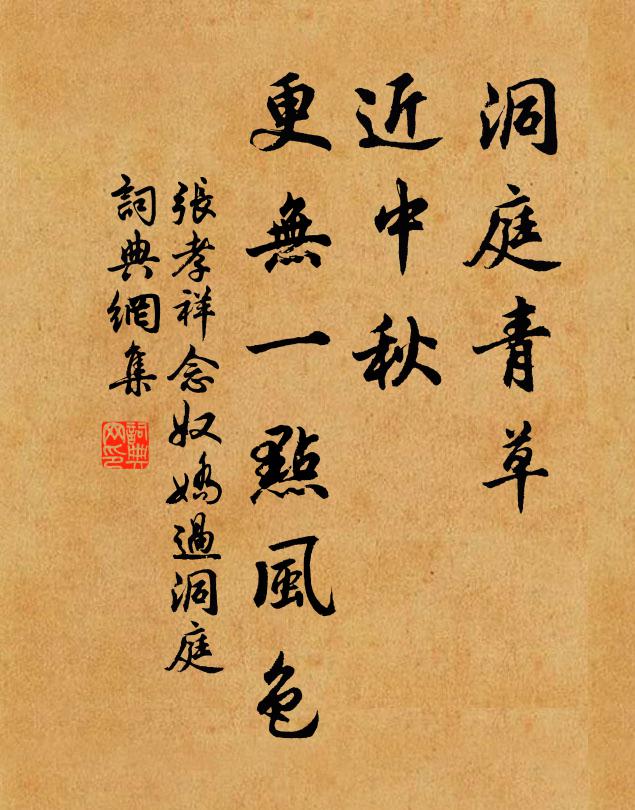 洞庭青草
近中秋
更無一點風色
張孝祥念奴嬌過洞庭
詞典網集
詞典网印